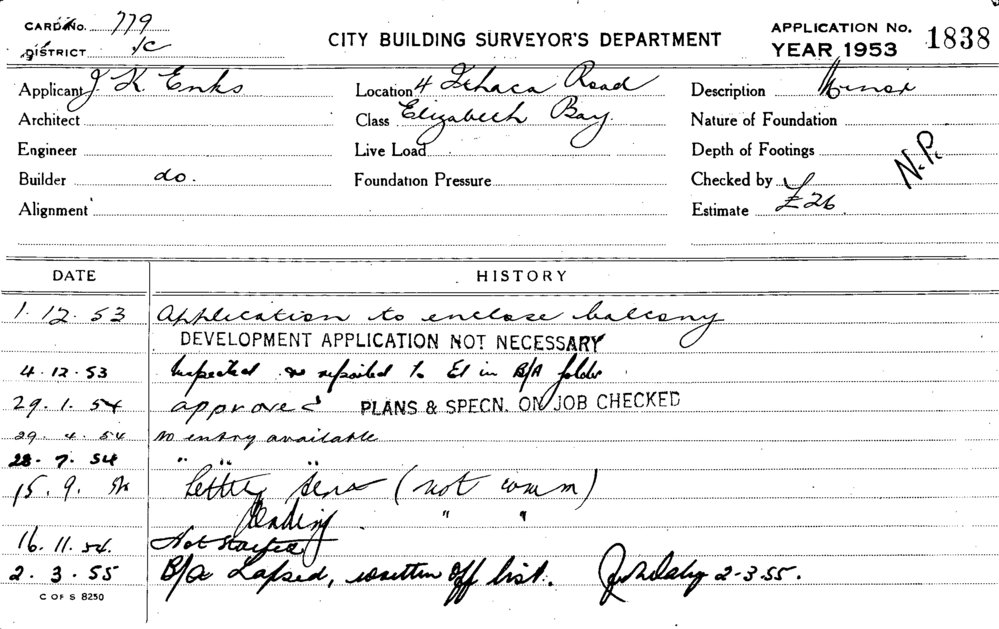 CARD No. 779
DISTRICT I/C
CITY BUILDING SURVEYOR'S DEPARTMENT
APPLICATION No. 1838
YEAR 1953
Applicant J. K. Enks
Location 4 Ithaca Road
Description Minor
Architect
Class Elizabeth Bay.
Nature of Foundation
Engineer
Live Load
Depth of Footings
N.P.
Builder do.
Foundation Pressure
Checked by
Alignment
Estimate £26.
DATE HISTORY
1. 12. 53 Application to enclose balcony
DEVELOPMENT APPLICATION NOT NECESSARY
4. 12. 53 Inspected & reported to in B/A folder
29. 1. 54 approved PLANS & SPECN. ON JOB CHECKED
29. 4. 54 no entry available
28. 7. 54 " " "
15. 9. 54 Letter sent (not comm)
Pending " "
16. 11. 54. Not started
2. 3. 55 B/A Lapsed, written off list. 2-3-55.
C OF S 8250